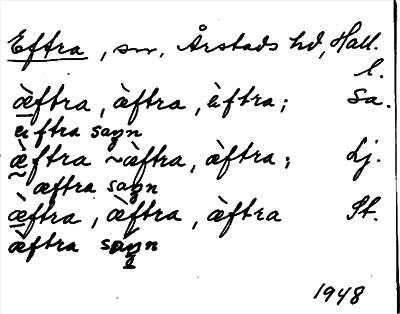 Eftra, sn, Årstads hd, Hall. l.
æ̀ftra, æ̀ftra, èftra; Sa.
æftra sagn
æ̀ftra ~ æ̀ftra, æ̀ftra; Lj.
~ æftra sagn
æ̀ftra, æ̀ftra, æ̀ftra St.
æ̀ftra sagn
1948